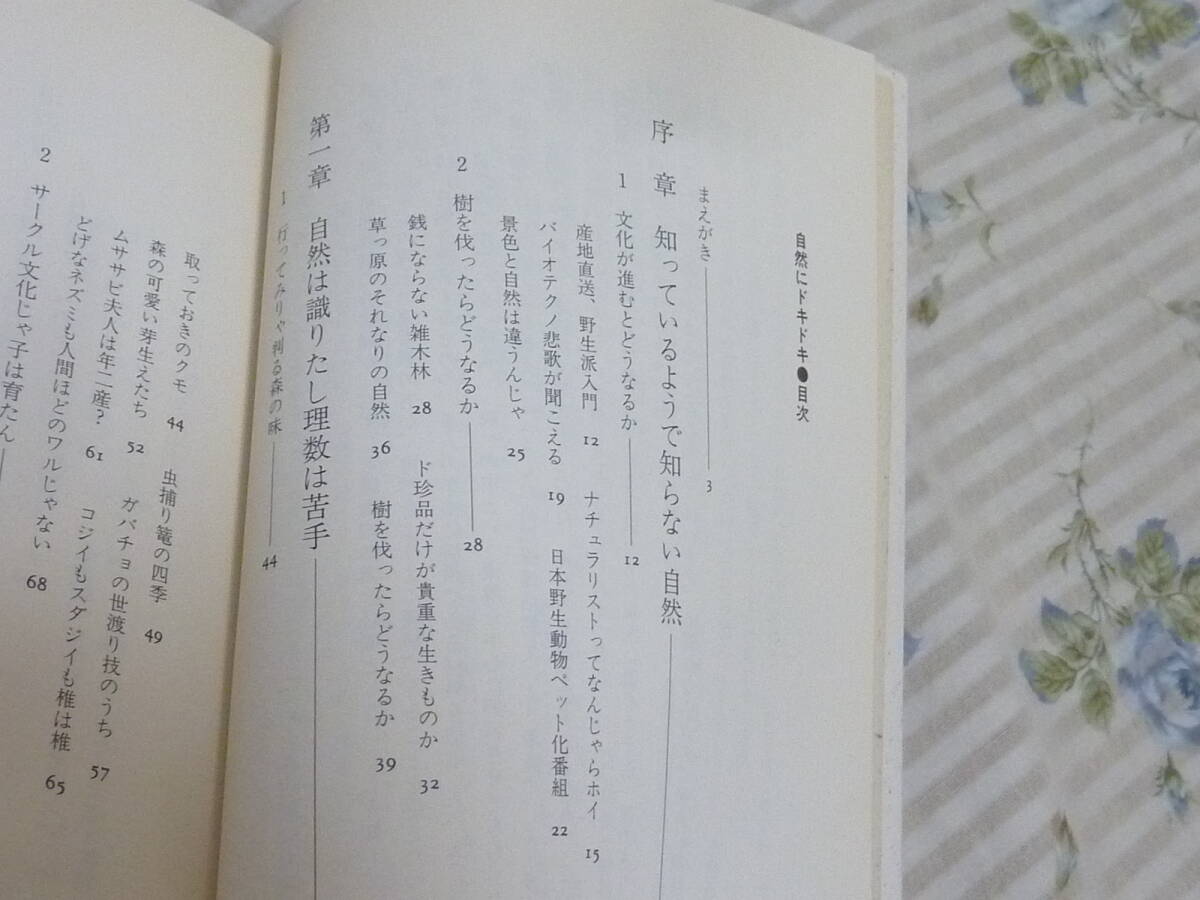 自然にドキドキ●目次
まえがき 3
序章 知っているようで知らない自然
1 文化が進むとどうなるか 12
産地直送、野生派入門 12 ナチュラリストってなんじゃらホイ 15
バイオテクノ悲歌が聞こえる 19 日本野生動物ペット化番組 22
景色と自然は違うんじゃ 25
2 樹を伐ったらどうなるか 28
銭にならない雑木林 28 ド珍品だけが貴重な生きものか 32
草っ原のそれなりの自然 36 樹を伐ったらどうなるか 39
第一章 自然は識りたし理数は苦手
1 行ってみりゃ判る森の味 44
取っておきのクモ 44 虫捕り篭の四季 49
森の可愛い芽生えたち 52 ガバチョの世渡り技のうち 57
ムササビ夫人は年二産? 61 コジイもスダジイも椎は椎 65
どげなネズミも人間ほどのワルじゃない 68
2 サークル文化じゃ子は育たん